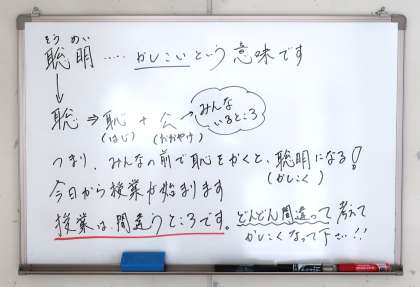 そう めい
聡明 ‥‥ かしこいという意味です
↓
聡 ⇒ 恥 + 公 → みんないるところ
(はじ) (おおやけ)
つまり、みんなの前で恥をかくと、聡明になる!
(かしこく)
今日から授業が始まります
授業は、間違うところです。どんどん間違って考えて
かしこくなって下さい!!